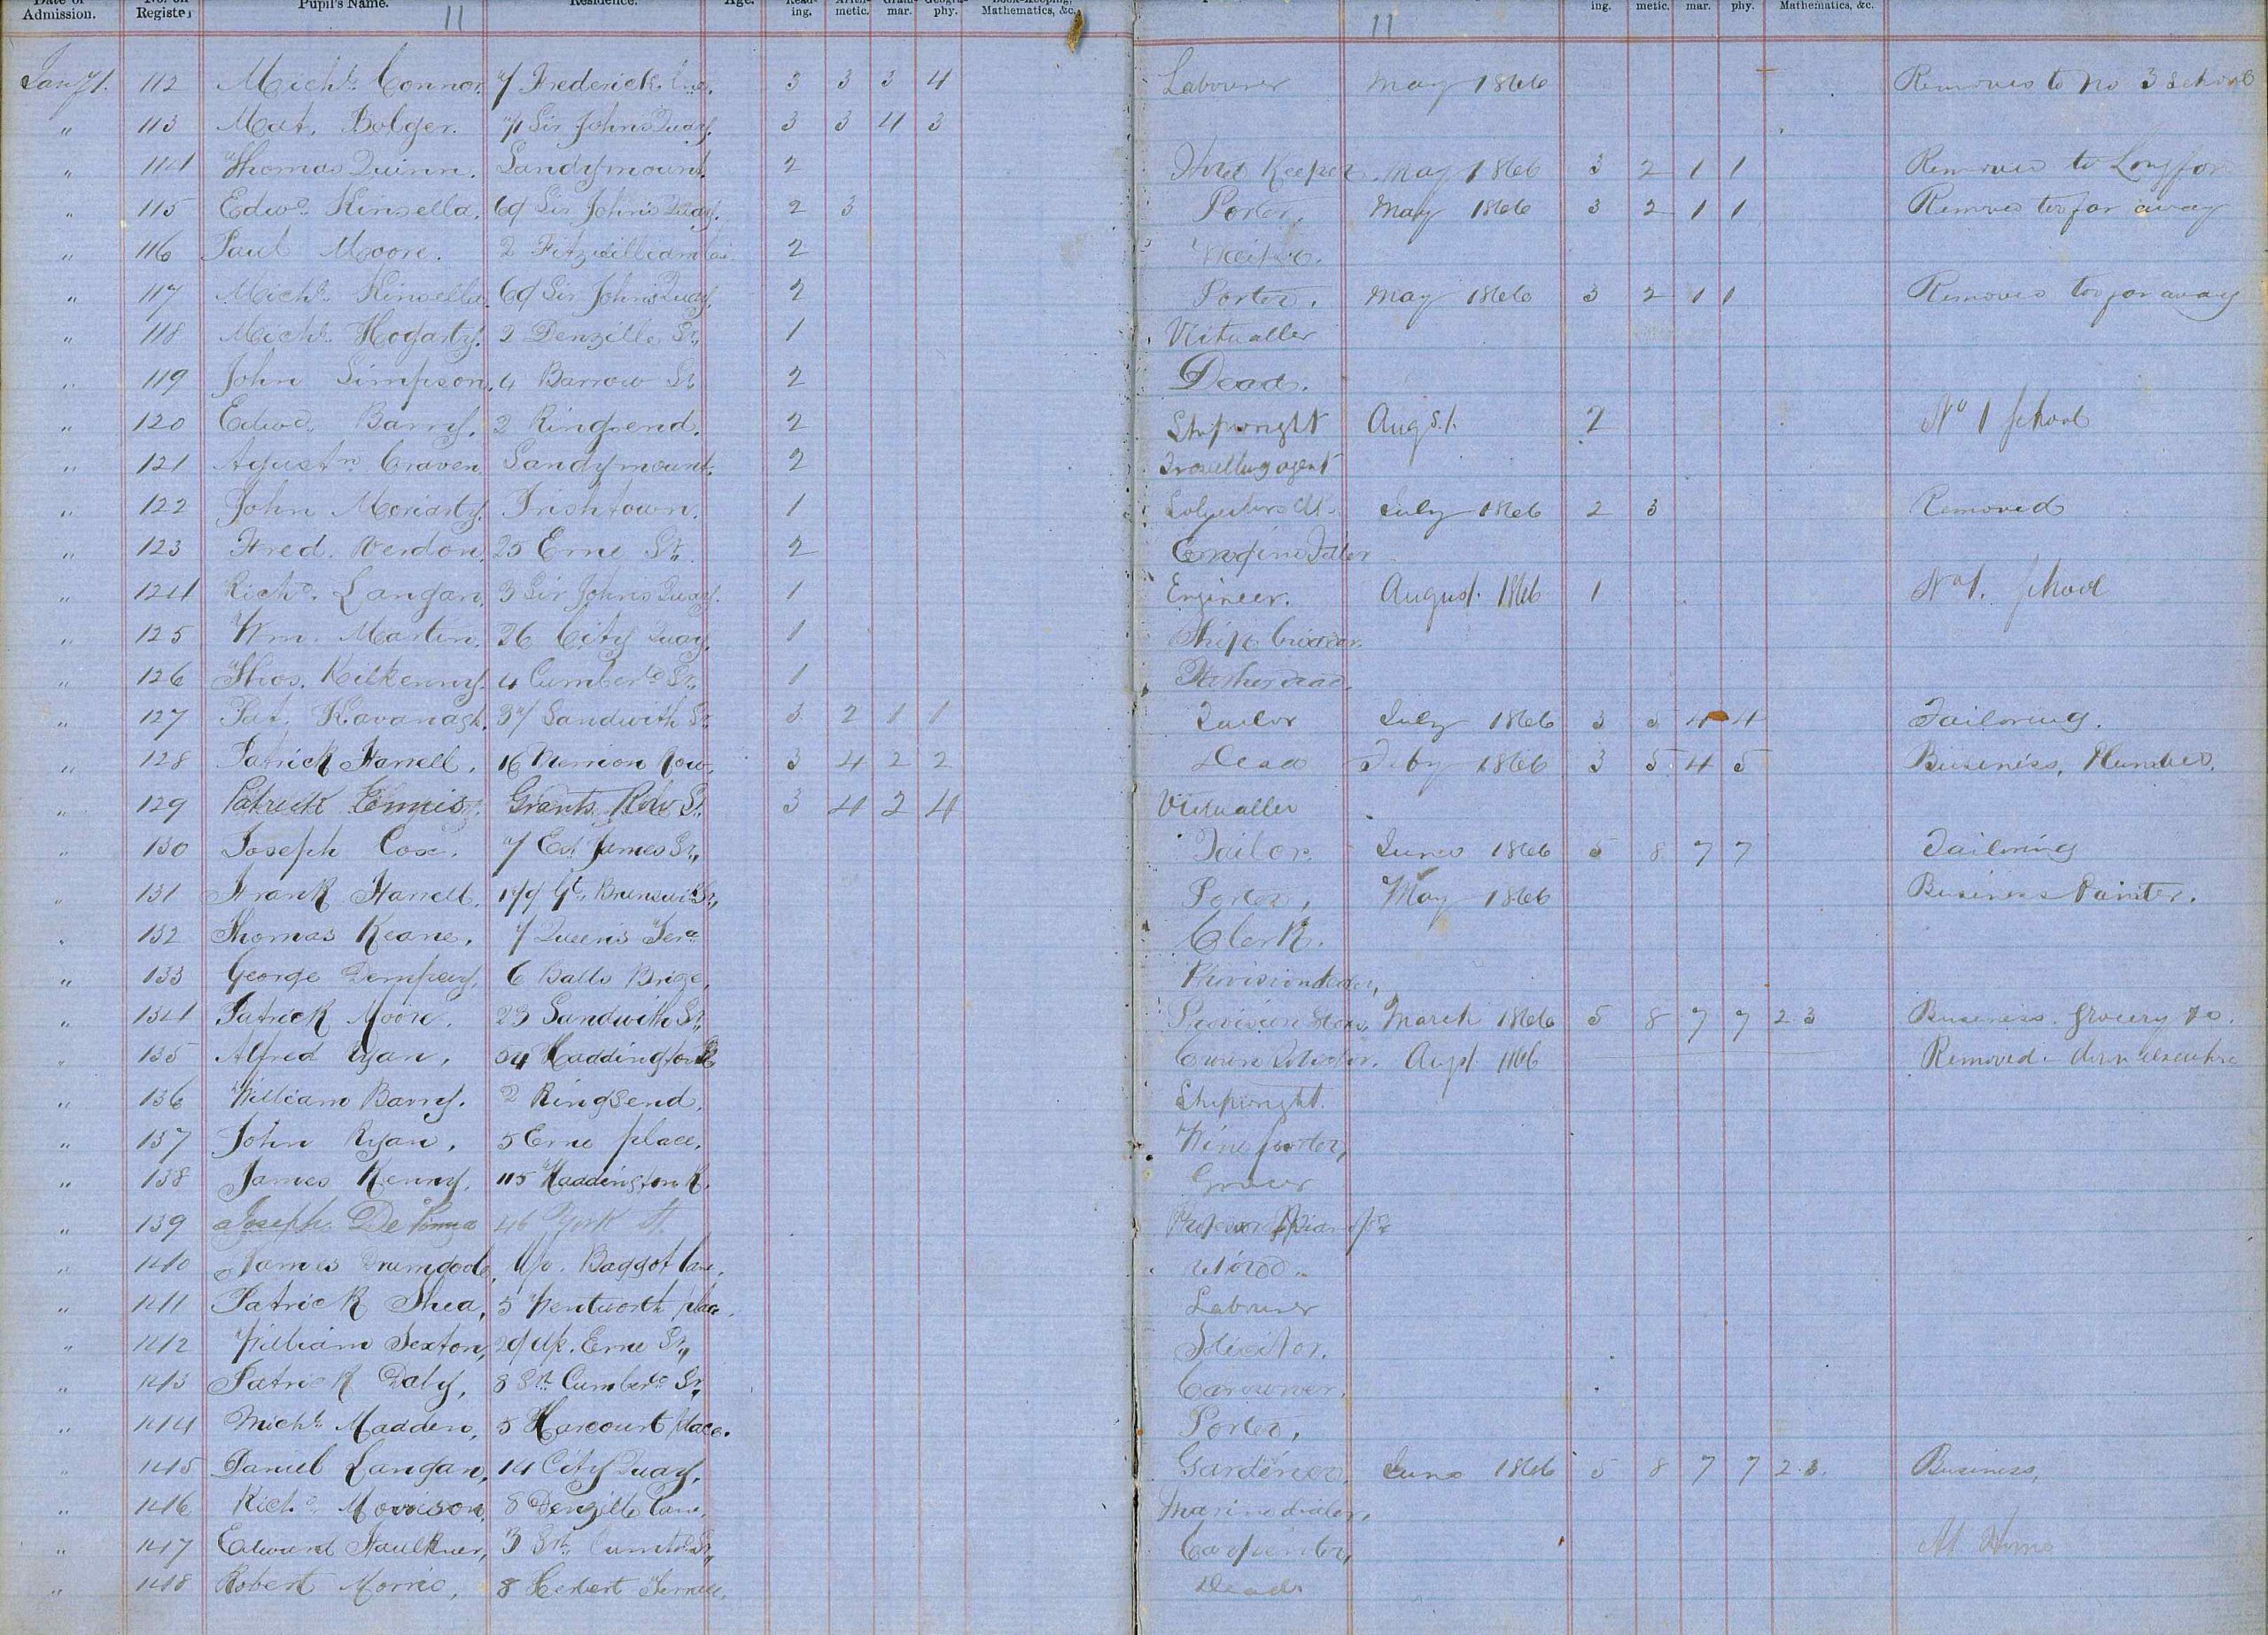 Date of Admission. No. on Register Pupil's Name. 11 Residence. Age. Read- ing. Arith- metic. Gram- mar. Geogra- phy. Book-keeping, Mathematics, &c. 11 ing. metic. mar. phy. Mathematics, &c.
Jany 1. 112 Michl. Connor, 7 Frederick 3 3 3 4 Labourer May 1866 Removed to No 3 School
" 113 Mat. Bolger. 71 Sir Johns Quay. 3 3 4 3
" 114 Thomas Quinn. Sandymount. 2 Keeper May 1866 3 2 1 1 Removed to Longford
" 115 Edwd. Kinsella, 69 Sir John's Quay. 2 3 Porter, May 1866 3 2 1 1 Removed too far away
" 116 Paul Moore. 2 Fitzwilliam 2
" 117 Michl. Kinsella. 69 Sir John's Quay. 2 Porter. May 1866 3 2 1 1 Removed too far away
" 118 Michl. Hogarty. 2 Denzille St., 1 Vitualler
" 119 John Simpson, 4 Barrow St. 2 Dead.
" 120 Edwd. Barry, 2 Ringsend. 2 Shipwright Augst. 2 No 1 School
" 121 Agustn. Craven, Sandymount. 2 Travelling agent
" 122 John Moriarty. Irishtown. 1 July 1866 2 3 Removed
" 123 Fred. Verdon, 25 Erne St. 2 Engine Fitter
" 124 Richd. Langan, 3 Sir John's Quay. 1 Engineer. August. 1866 1 No 1. School
" 125 Wm. Martin. 26 City Quay. 1 Ship
" 126 Thos. Kilkenny. 4 Cumberld St., 1
" 127 Pat. Kavanagh. 37 Sandwith St. 3 2 1 1 Tailor July 1866 3 5 4 4 Tailoring.
" 128 Patrick Farrell. 16 Merrion Row, 3 4 2 2 Dead Feby 1866 3 5 4 5 Business, Plumber.
" 129 Patrick Ennis, Grants Row St. 3 4 2 4 Victualler
" 130 Joseph Cox. 7 Est. James St., Tailor. June 1866 5 8 7 7 Tailoring
" 131 Frank Farrell. 179 Gt. Brunswick St., Porter, May 1866 Business Painter.
" 132 Thomas Keane. 7 Queens Terce Clerk.
" 133 George Dempsey, 6 Balls Brige, Provision dealer,
" 134 Patrick Moore. 23 Sandwith St., Provision Store, March 1866 5 8 7 7 2.3 Business. Grocery &c.
" 135 Alfred Ryan, 54 Haddington R Augt 1866 Removed.
" 136 William Barry. 2 Ringsend. Shipwright.
" 137 John Ryan, 5 Erne place, Wine porter,
" 138 James Kenny, 115 Haddington R. Grocer
" 139 Joseph De 46 York St.
" 140 James Drumgoole, Up. Baggot Lane,
" 141 Patrick Shea, 5 Wentworth place, Labourer
" 142 William Sexton, 29 Up. Erne St., Solicitor.
" 143 Patrick Daly, 8 Sth Cumberd St., Carowner.
" 144 Michl. Madden, 5 Harcourt place. Porter,
" 145 Daniel Langan, 14 City Quay, Gardener, June 1866 5 8 7 7 2.3. Business,
" 146 Richd. Morrison. 8 Denzille Lane, Marine dealer,
" 147 Edward Faulkner, 3 Sth. Cumbd St., Carpenter, At Home
" 148 Robert Morris, 8 Herbert Terrace, Dead.